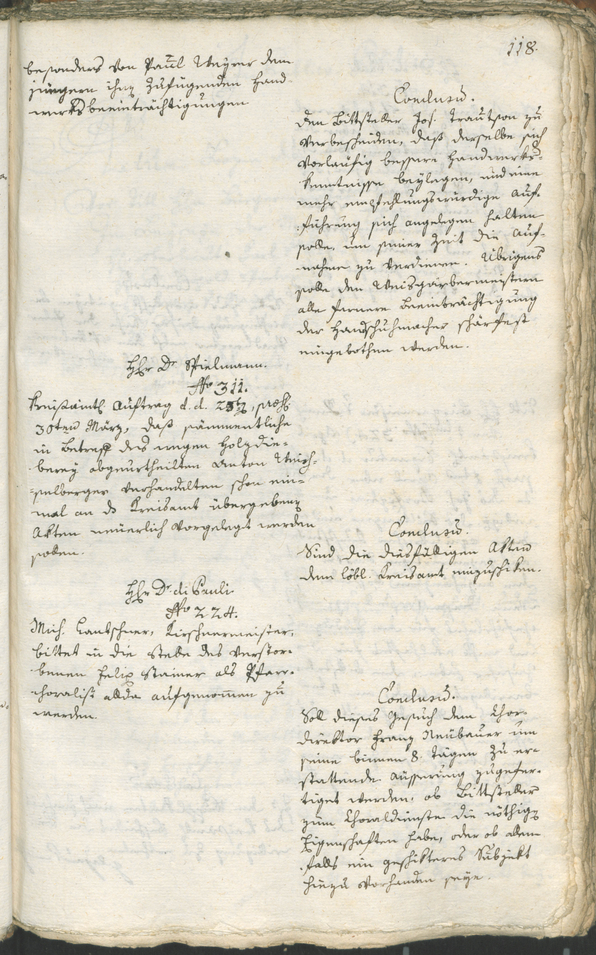 118.
besonders von Paul Mayrer dem
jüngern ihm zufügenden Hand-
werksbeeinträchtigungen
Conclusum.
den Bittsteller Jos. Trautson zu
verbescheiden, daß derselbe sich
vorläufig bessere Handwerks-
kenntnisse beylegen, und eine
mehr empfehlungswürdige Auf-
führung sich angelegen halten
solle, um seiner Zeit die Auf-
nahme zu verdienen. Übrigens
solle den Weisgärbermeistern
alle fernere Beeinträchtigung
der Handschuhmacher schärfest
eingebothen werden.
Hhr Dr Spielmann.
No 311.
Kreisamts Auftrag d. d.
30ten März, daß sämmentliche
in Betreff des wegen Holzdie-
berey abgeurtheilten Anton
verhandelten schon ein-
mal an das Kreisamt übergebene
Akten neuerlich vorgelegt werden
sollen.
Conclusum.
Sind die diesfälligen Akten
dem löbl. Kreisamt einzuschiken.
Hhr Dr di Pauli
No 224.
Mich. Lantschner, Kirschnermeister,
bittet in die Stelle des verstor-
benen Felix Stainer als Pfarr-
choralist allda aufgenommen zu
werden.
Conclusum.
Soll dieses Gesuch dem Chor-
direktor Franz Neubauer um
seine binnen 8. Tägen zu er-
stattende Äusserung zugefer-
tiget werden, ob Bittsteller
zum Choraldienste die nöthige
Eigenschaften habe, oder ob allen-
falls ein geschikteres Subjekt
hiezu vorhanden seye.